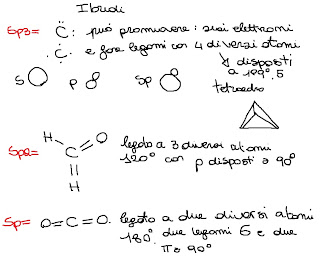 Ibridi
Sp3= C: può promuovere: suoi elettroni
C: e fare legami con 4 diversi atomi
disposti
a 109°.5
S p sp tetraedro
H O
Sp2= C legato a 3 diversi atomi
120° con p disposti a 90°
H
Sp= O=C=O. legato a due diversi atomi
180° due legami 6 e due
π a 90°